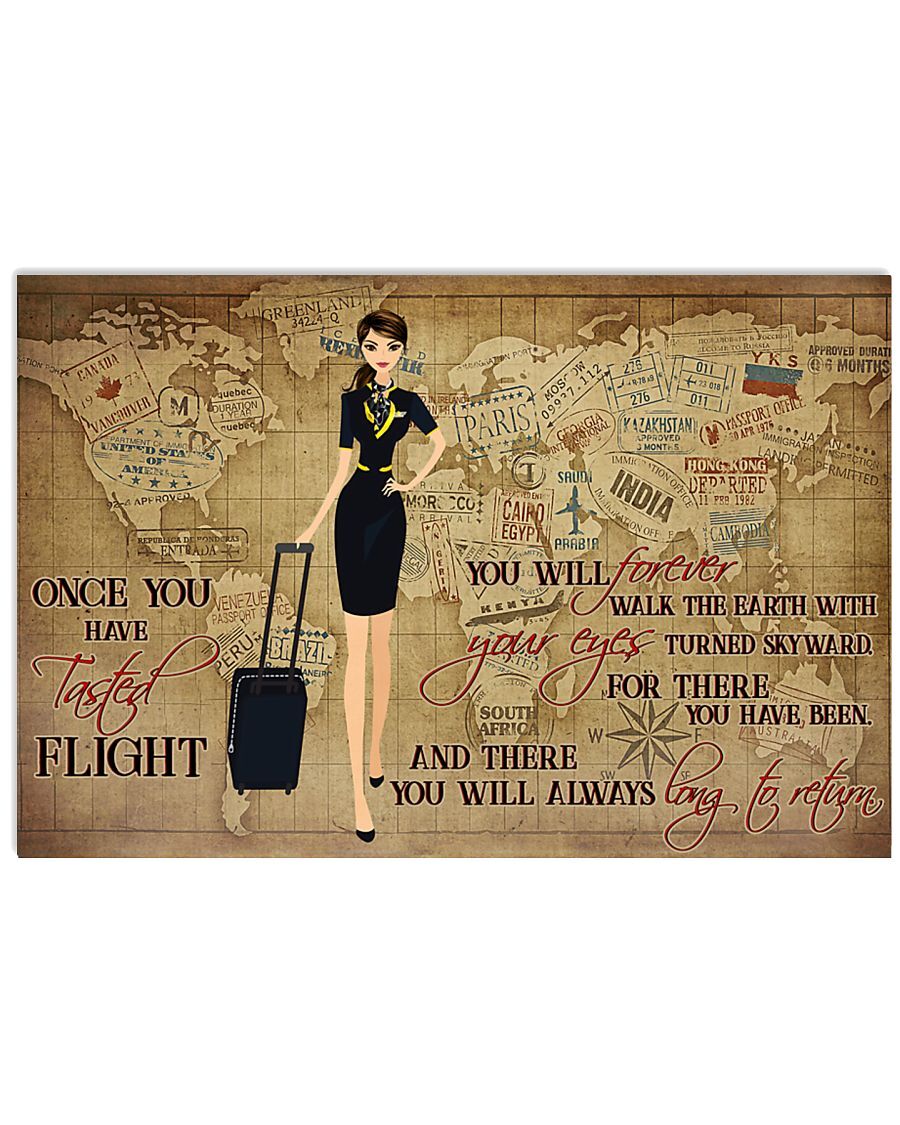 ONCE YOU
HAVE
Tasted
FLIGHT
YOU WILL forever
WALK THE EARTH WITH
your eyes TURNED SKYWARD.
FOR THERE
YOU HAVE BEEN.
AND THERE
YOU WILL ALWAYS long to return.
GREENLAND
34224-Q
CANADA
19 73
VANCOUVER
M
quebec
DURATION
1 YEAR
quebec
UNITED STATES
OF
AMERICA
APPROVED
REPUBLICA DE HONDURAS
ENTRADA
VENEZUELA
PASSPORT OFFICE
PERU
BRAZIL
PARIS
MOSCOW
09937.112
GEORGIA
276
276
011
23 018
011
YKS
APPROVED DURATI
6 MONTHS
KAZAKHSTAN
APPROVED
3 MONTHS
PASSPORT OFFICE
30 APR 1976
JAPAN
IMMIGRATION INSPECTION
LANDING PERMITTED
HONG KONG
DEPARTED
11 FEB 1982
IMMIGRATION OFFICE
INDIA
CAMBODIA
SAUDI
ARABIA
MOROCCO
ARRIVAL
CAIRO
EGYPT
NIGERIA
KENYA
SOUTH
AFRICA
AUSTRALIA
W
F
SW
SE